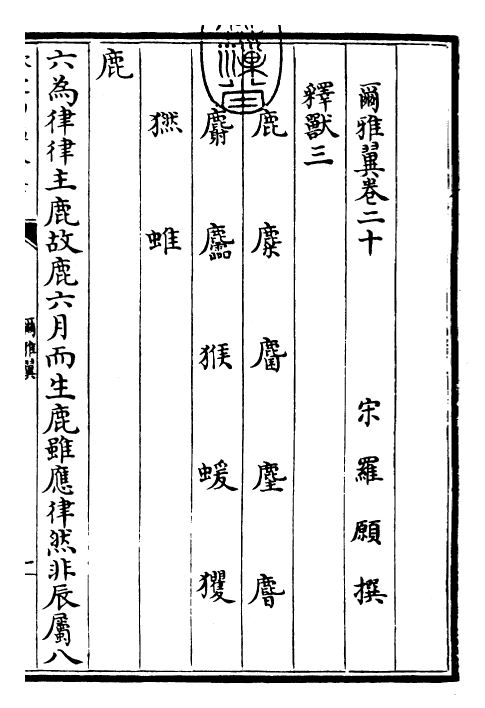 爾雅翼卷二十 宋 羅願 撰
釋獸三
鹿 麋 麕 麈 麔
麝 麢 猴 蝯 玃
蜼
鹿
六為律律主鹿故鹿六月而生鹿雖應律然非辰屬八
爾雅翼